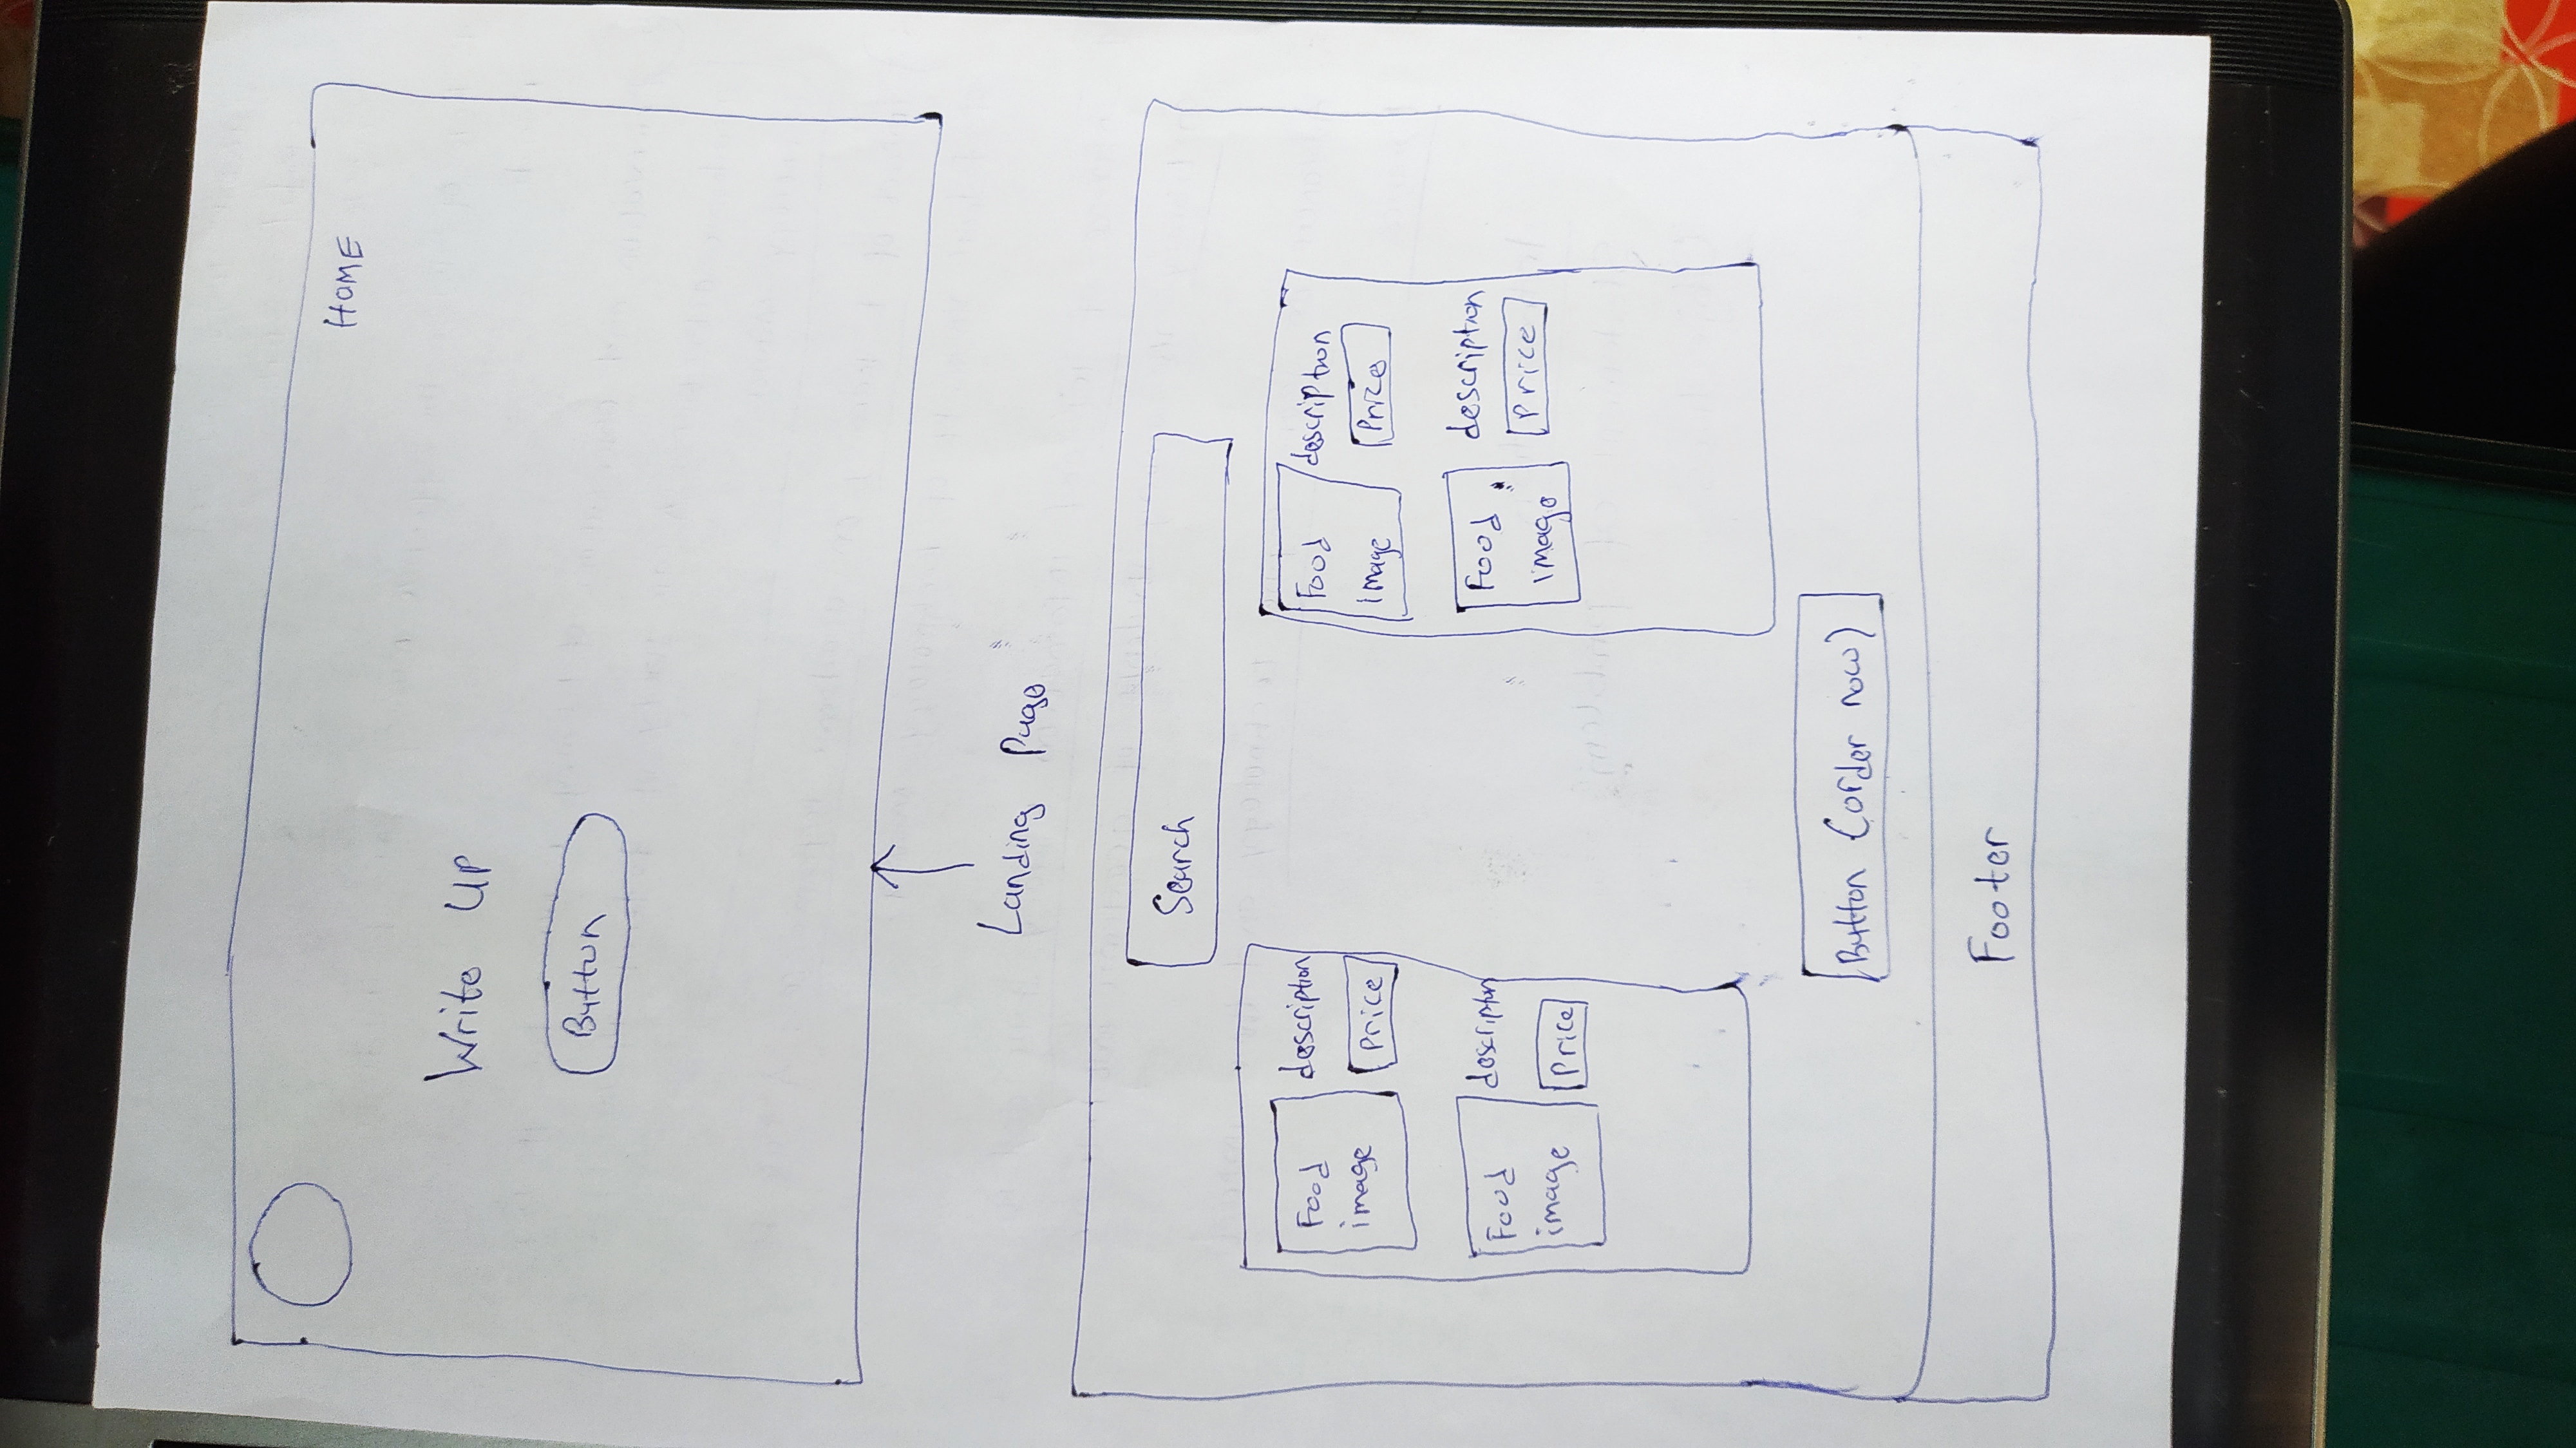 HOME
Write Up
Button
Landing Page
Search
Food
image
description
Price
Food
image
description
Price
Food
image
description
Price
Food
image
description
Price
Button (order now)
Footer